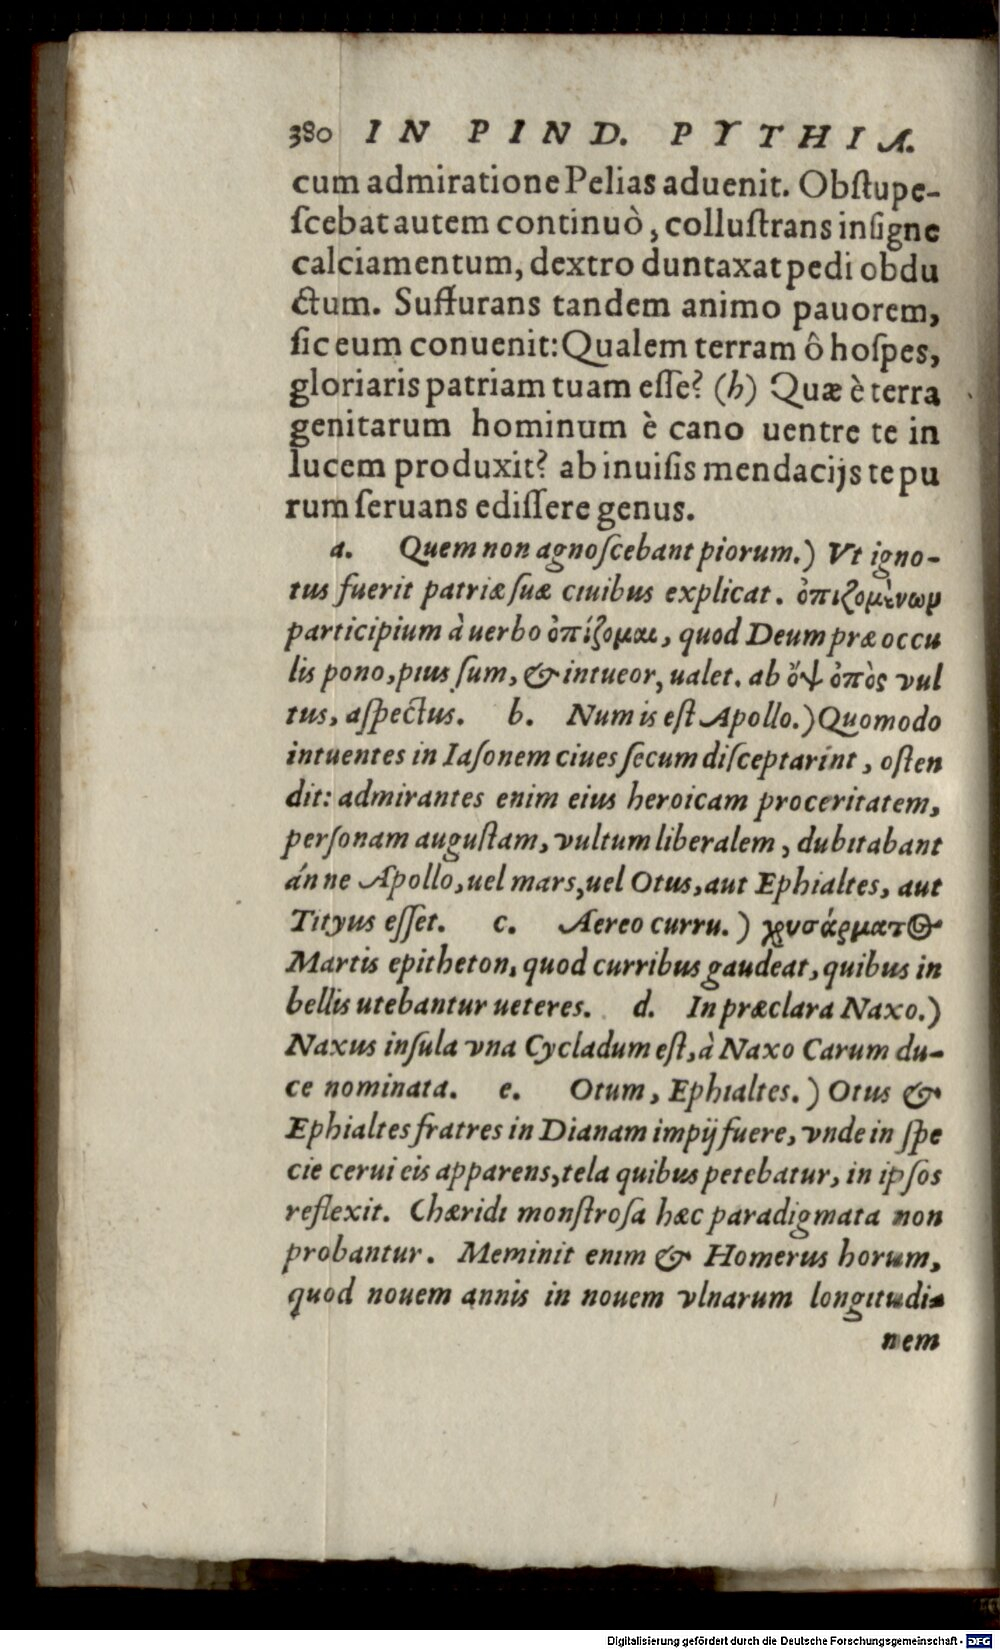 380 IN PIND. PYTHIA.
cum admiratione Pelias aduenit. Obſtupe-
ſcebat autem continuò, colluſtrans inſigne
calciamentum, dextro duntaxat pedi obdu
ctum. Suffurans tandem animo pauorem,
ſic eum conuenit: Qualem terram ô hoſpes,
gloriaris patriam tuam eſſe? (h) Quæ è terra
genitarum hominum è cano uentre te in
lucem produxit? ab inuiſis mendacijs te pu
rum ſeruans ediſſere genus.
a. Quem non agnoſcebant piorum.) Vt igno-
tus fuerit patriæ ſuæ ciuibus explicat. ὀπιζομένων
participium à uerbo ὀπίζομαι, quod Deum præ occu
lis pono, pius ſum, & intueor, ualet. ab ὄψ ὀπὸς vul
tus, aſpectus. b. Num is eſt Apollo.) Quomodo
intuentes in Iaſonem ciues ſecum diſceptarint, oſten
dit: admirantes enim eius heroicam proceritatem,
perſonam auguſtam, vultum liberalem, dubitabant
án ne Apollo, uel mars, uel Otus, aut Ephialtes, aut
Tityus eſſet. c. Aereo curru.) χρυσάρματος
Martis epitheton, quod curribus gaudeat, quibus in
bellis utebantur ueteres. d. In præclara Naxo.)
Naxus inſula vna Cycladum eſt, à Naxo Carum du-
ce nominata. e. Otum, Ephialtes.) Otus &
Ephialtes fratres in Dianam impij fuere, vnde in ſpe
cie cerui eis apparens, tela quibus petebatur, in ipſos
reflexit. Chæridi monſtroſa hæc paradigmata non
probantur. Meminit enim & Homerus horum,
quod nouem annis in nouem vlnarum longitudi-
nem
Digitalisierung gefördert durch die Deutsche Forschungsgemeinschaft - DFG